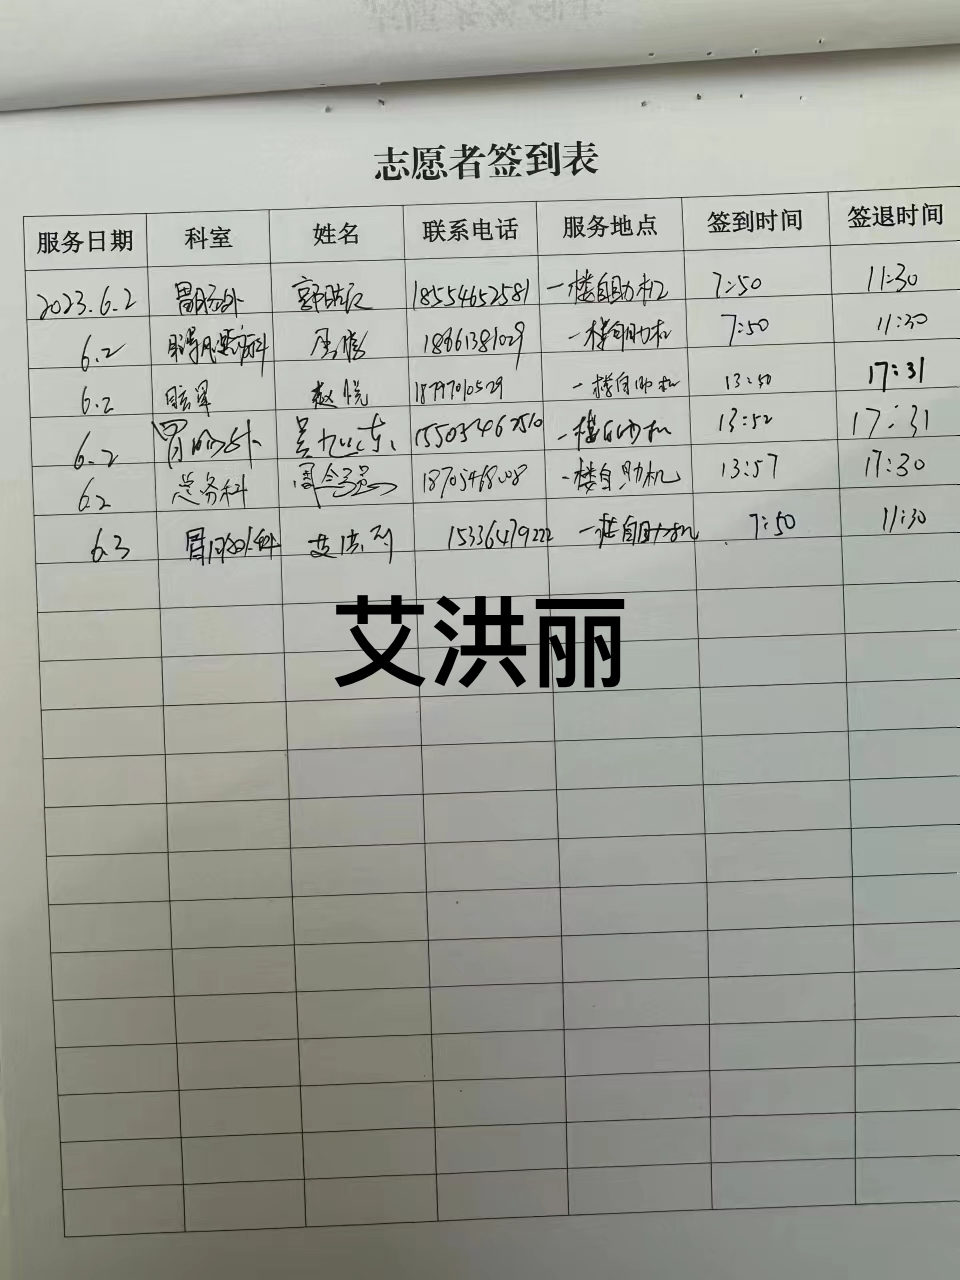 志愿者签到表
服务日期 科室 姓名 联系电话 服务地点 签到时间 签退时间
2023.6.2 胃肠外 18554652581 一楼自助机 7:50 11:30
6.2 科 周 18961381029 一楼自助机 7:50 11:30
6.2 赵悦 18797010529 一楼自助机 13:50 17:31
6.2 吴 东 15503462510 一楼自助机 13:52 17:31
6.2 总务科 周 一楼自助机 13:57 17:30
6.3 科 艾洪丽 15336479222 一楼自助机 7:50 11:30
艾洪丽